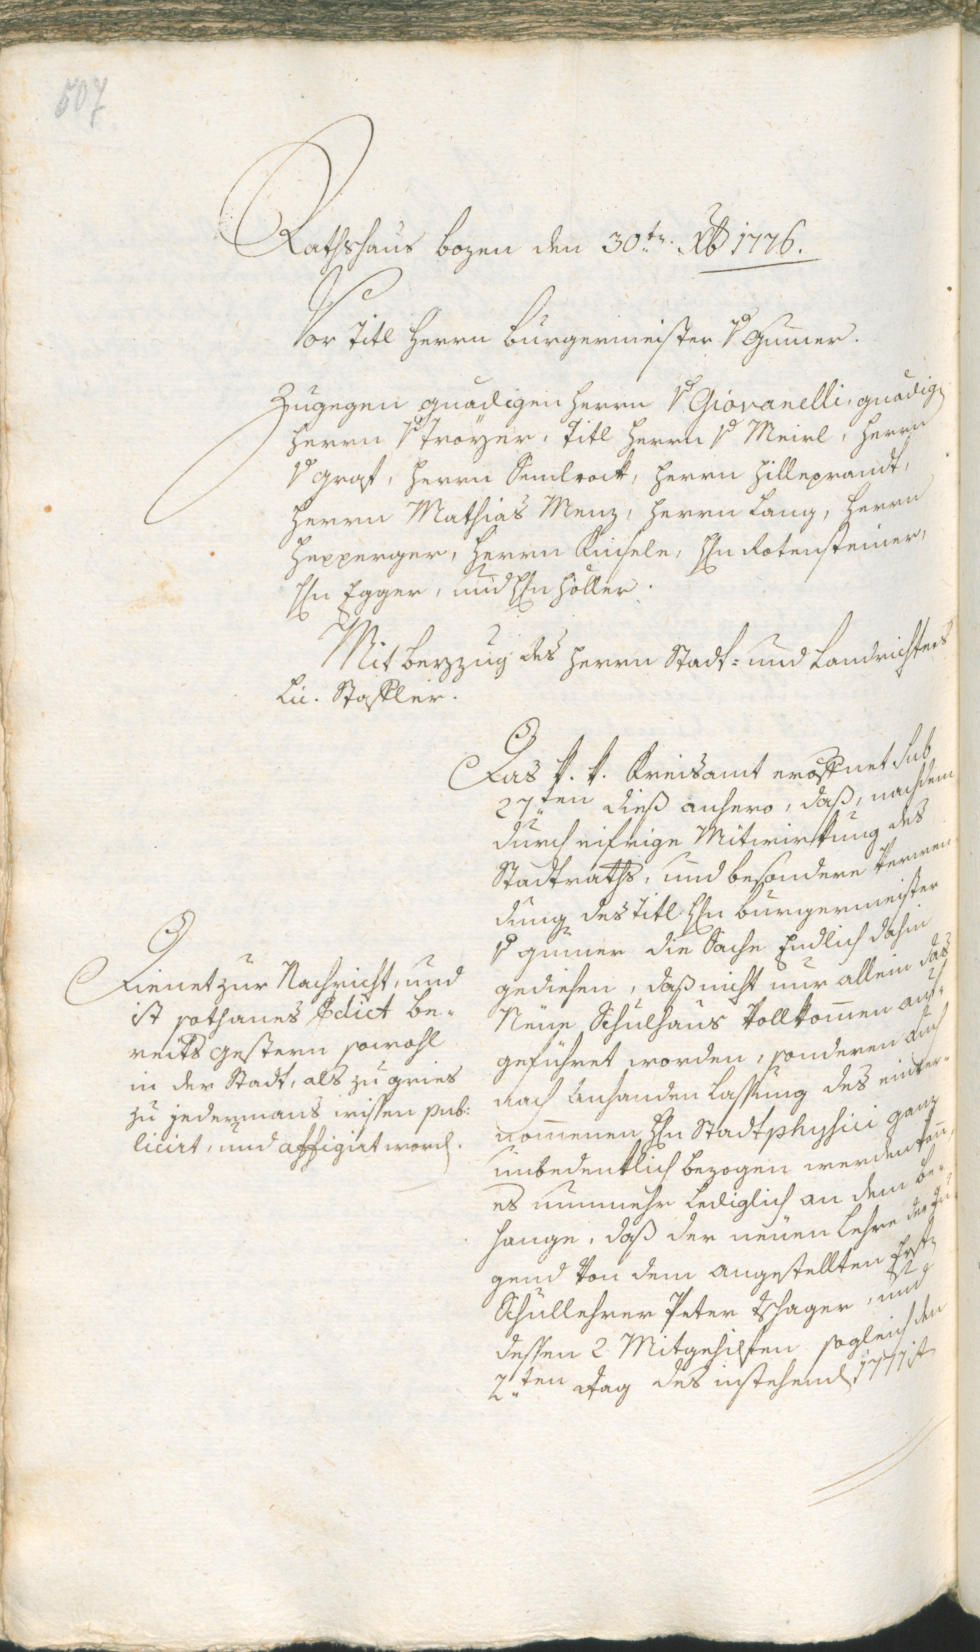 507
Rathshaus bozen den 30.ten Xb 1776.
Vor Titl Herrn burgermeister v Gumer.
Zugegen gnädigen herrn v Giovanelli, gnädig
herrn v Troÿer, Titl herrn v Meirl, herrn
v graf, herrn Simlrock, herrn Hilleprandt,
herrn Mathias Menz, herrn Lang, herrn
hepperger, herrn Kinsele, Hn Rotensteiner,
Hn Egger, und Hn höller.
Mit beyzug des herrn Stadt- und Landrichters
Lic. Stafler.
Das k. k. Kreisamt eröffnet sub
27ten dieß anhero, daß, nachdem
durch eifrige Mitwirkung des
Stadtraths, und besondere Verwen
dung des Titl Hn burgermeister
v gumer die Sache Endlich dahin
gediehen, daß nicht nur allein das
Neue Schulhaus Vollkomen auf-
geführet worden, sonderen auch
nach Anhanden lassung des einver-
nommenen Hn Stadtphysici ganz
unbedenklich bezogen werden kann,
es nunmehr lediglich an dem be-
hange, daß der neuen Lehre der Ju
gend von dem angestellten Erst
Schullehrer Peter Tschager, und
dessen 2 Mitgehilfen sogleich den
2ten Tag des instehend 1777ist
Dienet zur Nachricht, und
ist sothanes Edict be-
reits gestern sowohl
in der Stadt, als zu gries
zu jedermans wissen pub:
licirt, und affigirt word.